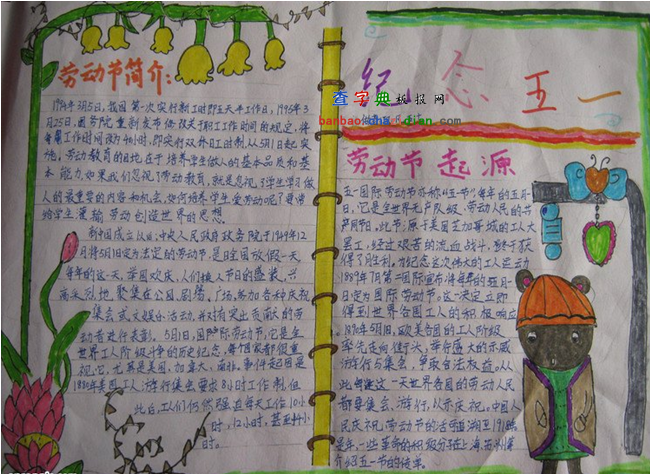 劳动节简介:
1994年3月5日,我国第一次实行制工时即五天半工作日,1995年3
月25日,国务院重新发布修改关于职工工作时间的规定,将
每周工作时间改为40小时,即实行双休日工时制从5月1日起实
施,劳动教育的目地在于培养学生做人的基本品质和基
本能力如果我们忽视了劳动教育,就是忽视了学生学习做
人的最重要的内容和机会,如何培养学生爱劳动呢?要常
给学生灌输劳动创造世界的思想
新中国成立以后,中央人民政府政务院于1949年12
月将5月1日定为法定的劳动节,是日全国放假一天
每年的这一天,举国欢庆,人们换人节日的盛装,兴
高采烈地聚集在公园,剧场,广场,参加各种庆祝
集会或文娱活动,并对有突出贡献的劳
动者进行表彰。5月1日,国际劳动节,它是全
世界工人阶级斗争的历史纪念,每个国家都很重
视它,尤其是美国,加拿大,南非,事件起因是
1886年美国工人游行集会要求8小时工作制,但
此后,工人们仍然强迫每天工作10小
时,12小时,甚至料小
时。
纪念五一
查字典板报网
banbao.chazidian.com
劳动节起源
五一国际劳动节亦称"五一节,每年的五月一
日,它是全世界无产队级、劳动人民的共
同节日,此节源于美国芝加哥城的工人大
罢工,经过艰苦的流血战斗,终于获
得了胜利,为纪念这次伟大的工人运动
1889年7月第二国际宣布将每年的五月一
日定为国际劳动节。这一决定立即
得到世界各国工人的积极响应
1890年5月1日,欧美各国的工人阶级
率先走向街头,举行盛大的示威
游行与集会,争取合法权益。从
此每逢这一天世界各国的劳动人民
都要集会、游行,以示庆祝。中国人
民庆祝劳动节的活动可追溯至1918年
是年,一些革命的积极分子在上海
介绍五一节的传单